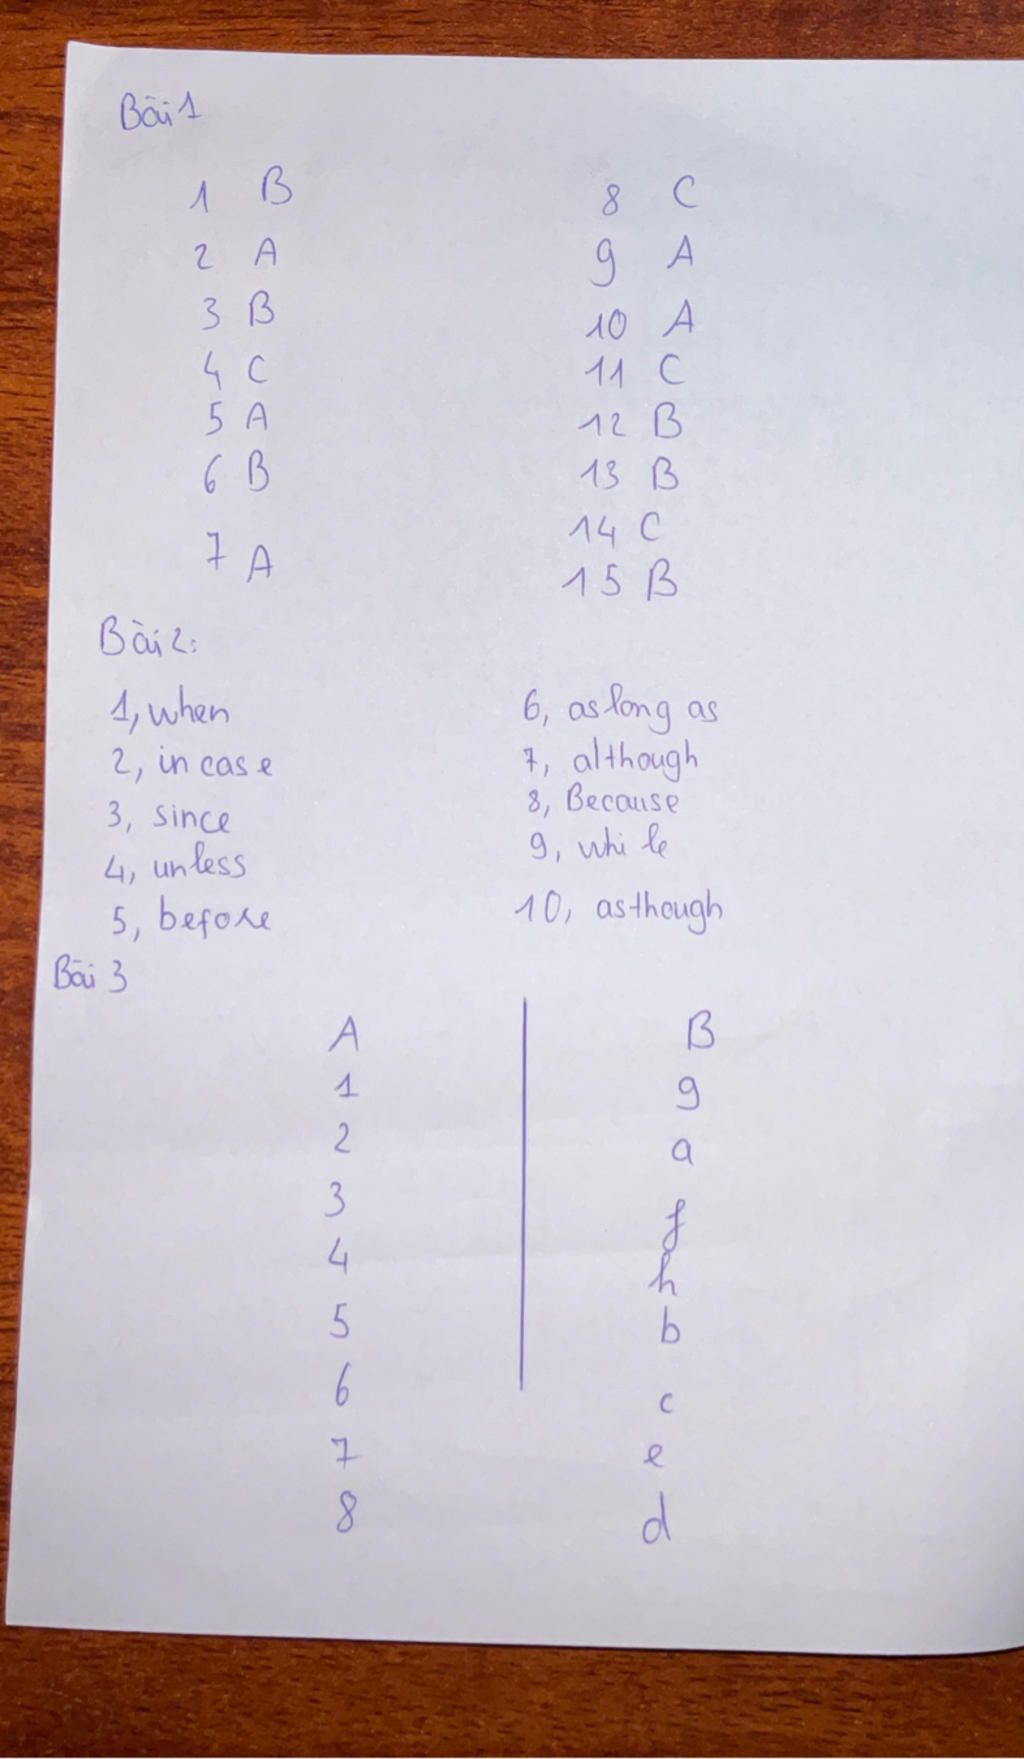 Bài 1
1 B 8 C
2 A 9 A
3 B 10 A
4 C 11 C
5 A 12 B
6 B 13 B
7 A 14 C
15 B
Bài 2:
1, when 6, as long as
2, in case 7, although
3, since 8, Because
4, unless 9, while
5, before 10, as though
Bài 3
A B
1 g
2 a
3 f
4 h
5 b
6 c
7 e
8 d